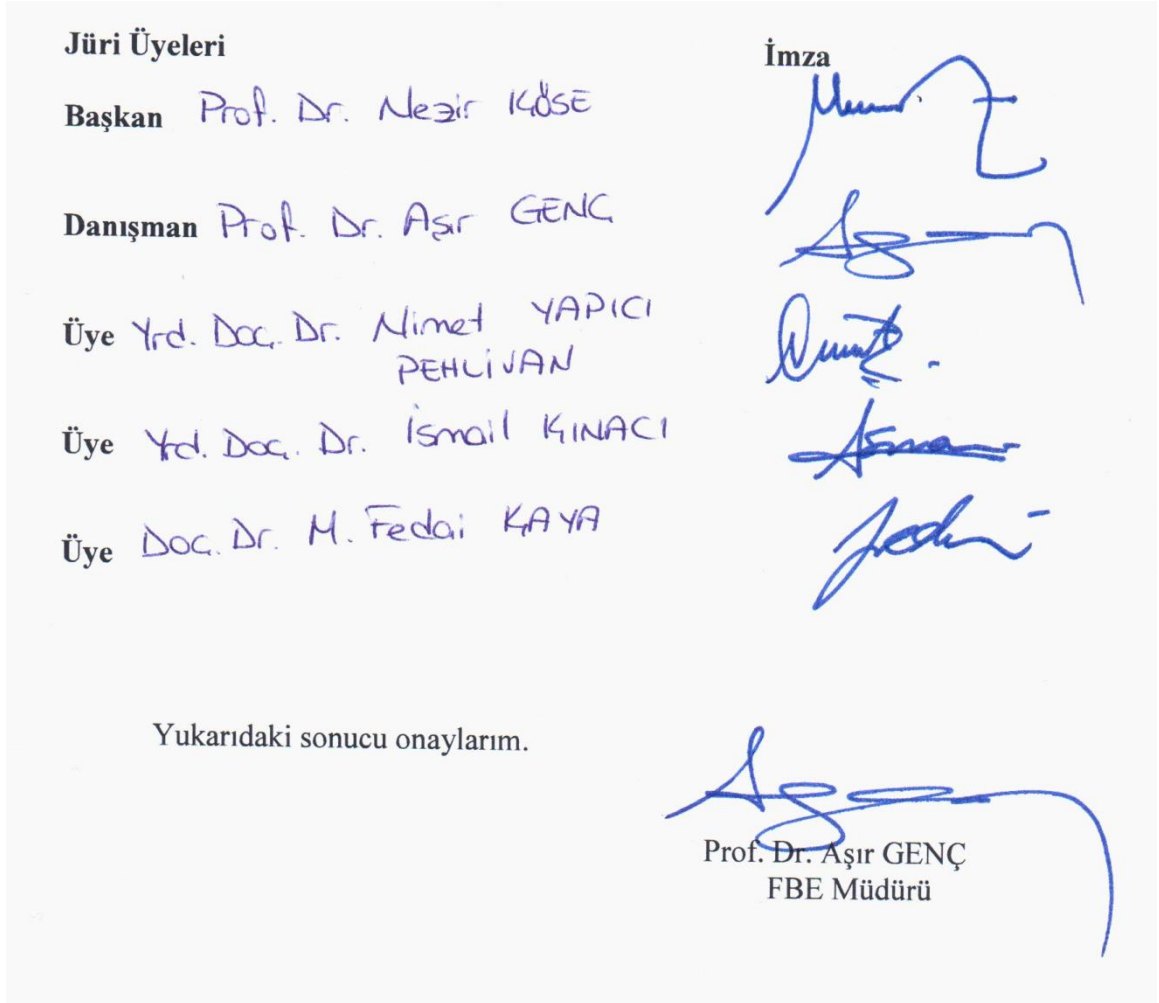 Jüri Üyeleri İmza
Başkan Prof. Dr. Nezir KÖSE
Danışman Prof. Dr. Aşır GENÇ
Üye Yrd. Doç. Dr. Nimet YAPICI
PEHLİVAN
Üye Yrd. Doç. Dr. İsmail KINACI
Üye Doç. Dr. M. Fedai KAYA
Yukarıdaki sonucu onaylarım.
Prof. Dr. Aşır GENÇ
FBE Müdürü